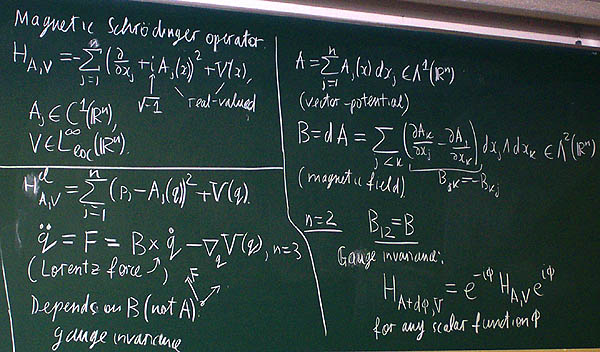 Magnetic Schrödinger operator
H_{A,V} = -∑_{j=1}^{n} (∂/∂x_j + iA_j(x))² + V(x),
√-1 real-valued
A_j ∈ C¹(ℝⁿ),
V ∈ L^∞_{loc}(ℝⁿ).
H^{cl}_{A,V} = ∑_{j=1}^{n} (p_j - A_j(q))² + V(q).
q̈ = F = B × q̇ - ∇_q V(q), n=3
(Lorentz force)
F
Depends on B (not A)
gauge invariance
A = ∑_{j=1}^{n} A_j(x) dx_j ∈ Λ¹(ℝⁿ)
(vector-potential)
B = dA = ∑_{j<k} (∂A_k/∂x_j - ∂A_j/∂x_k) dx_j ∧ dx_k ∈ Λ²(ℝⁿ)
(magnetic field) B_{jk} = -B_{kj}
n=2 B_{12} = B
Gauge invariance:
H_{A+dφ,V} = e^{-iφ} H_{A,V} e^{iφ}
for any scalar function φ